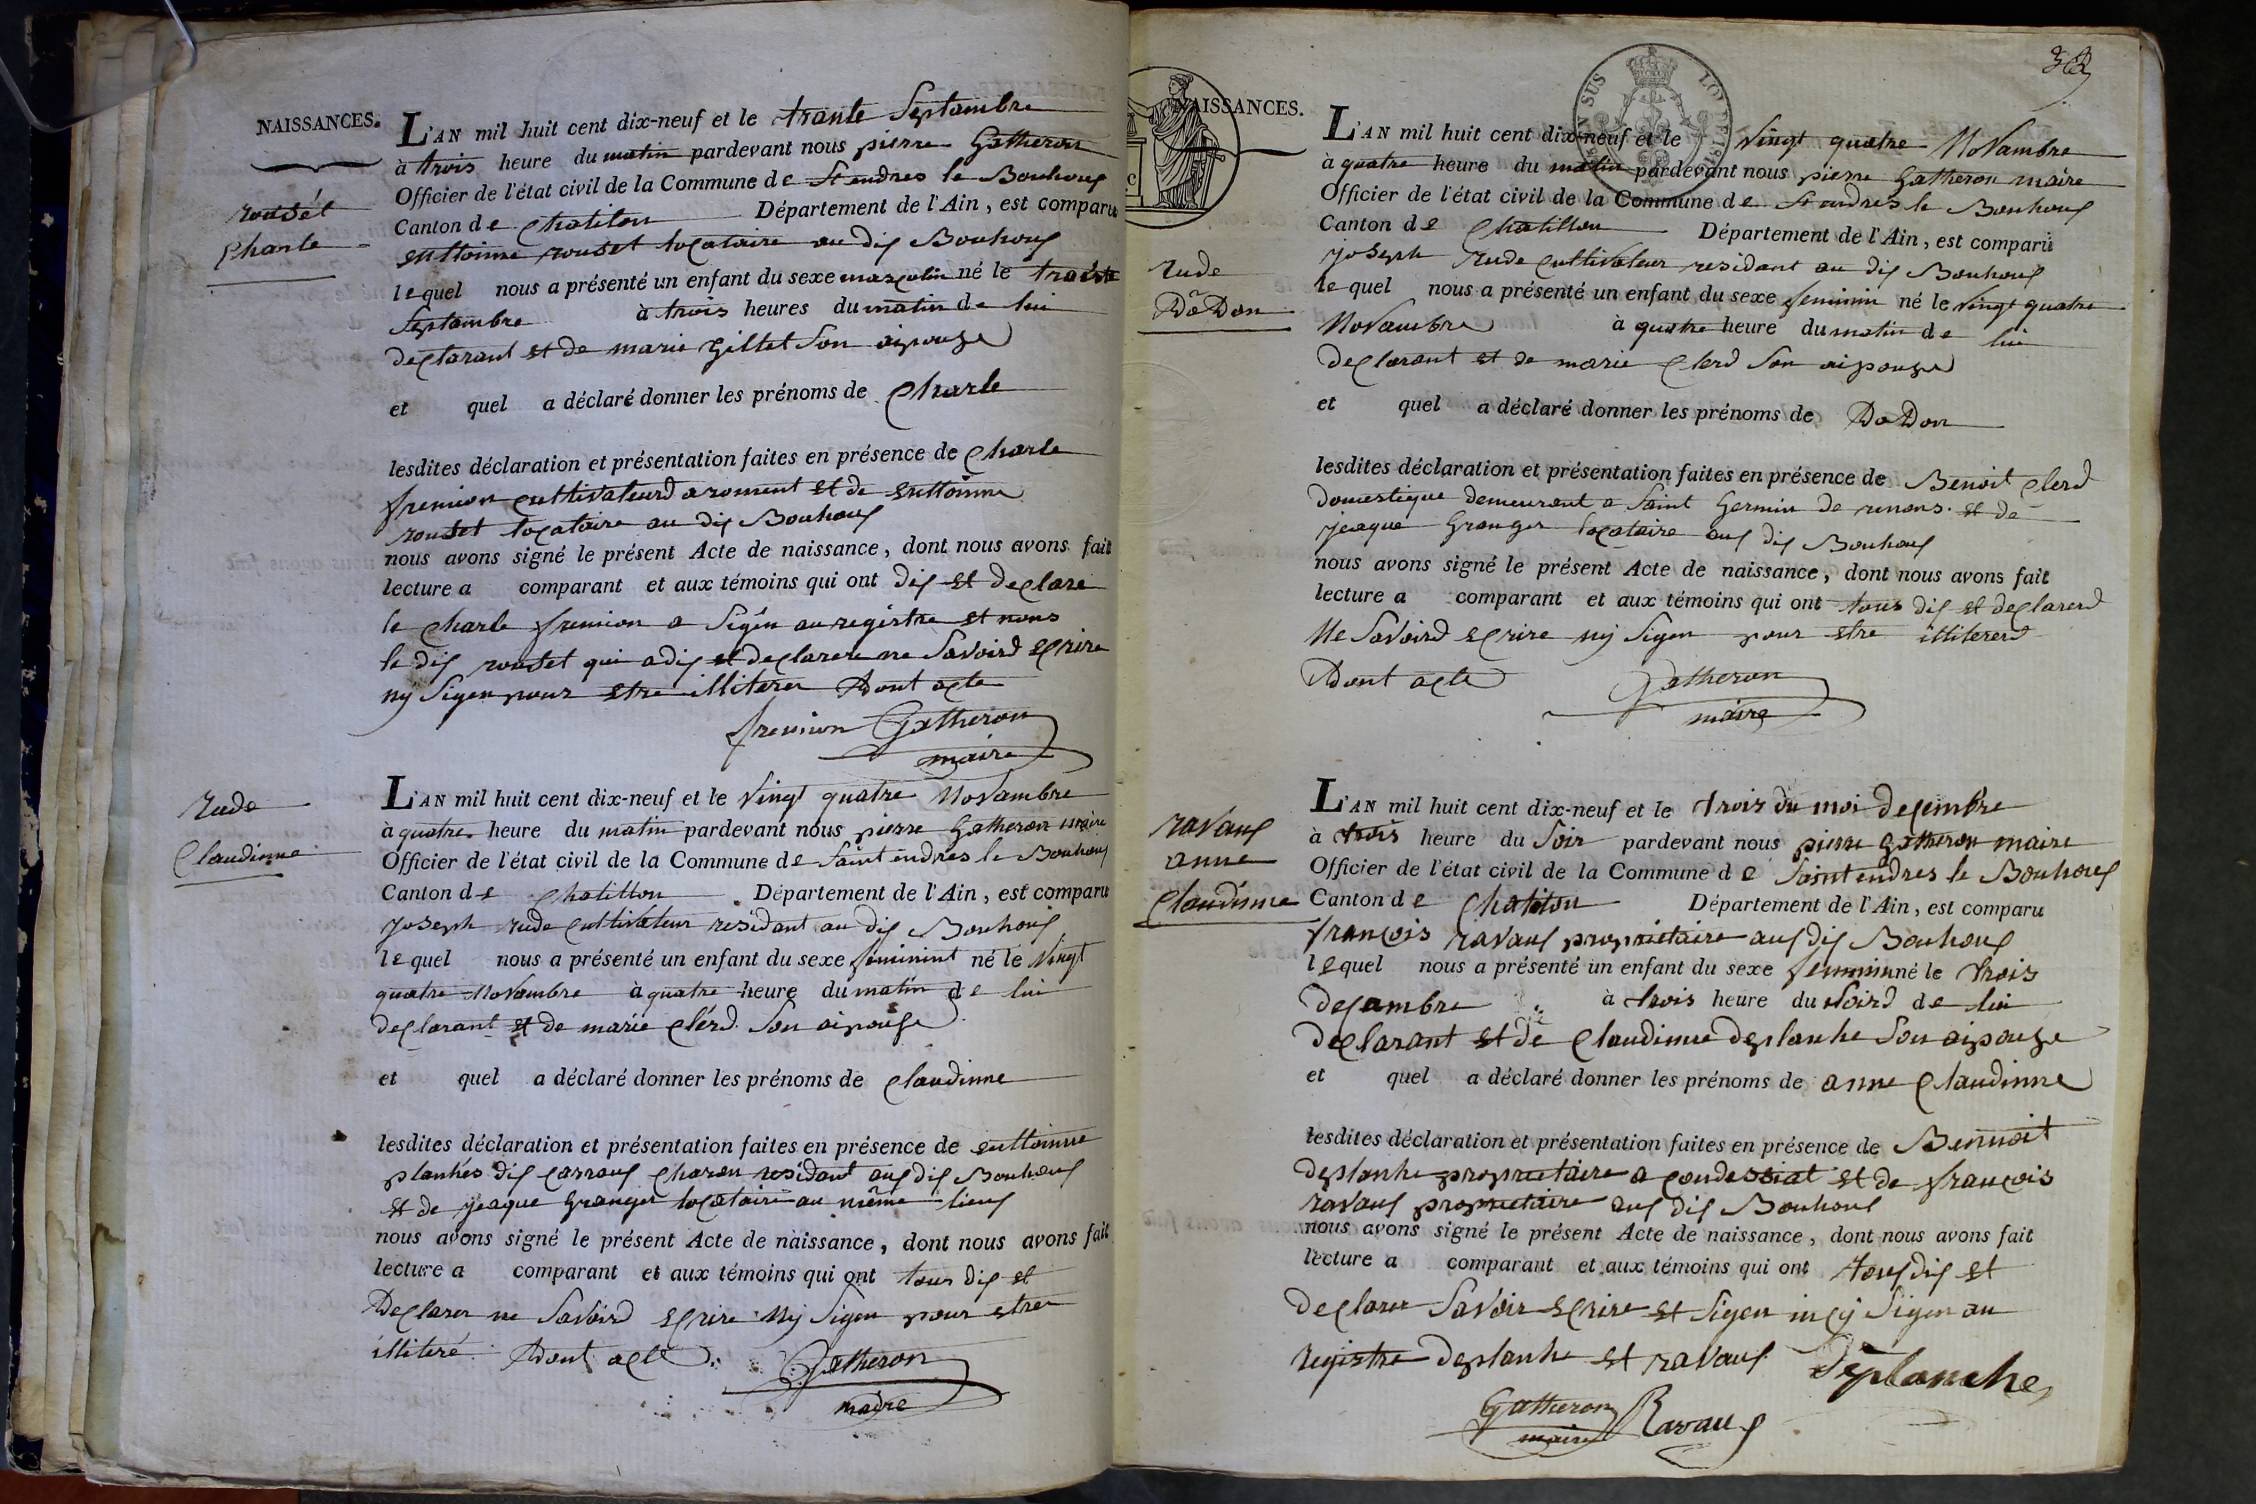 NAISSANCES.
rousét
Charle
L'AN mil huit cent dix-neuf et le trante Septambre
à trois heure du matin pardevant nous pierre Gatheron
Officier de l'état civil de la Commune de St endres le Bouhoux
Canton de Chatilon Département de l'Ain, est comparu
enttoinne rouset locataire au dis Bouhoux
lequel nous a présenté un enfant du sexe masculin né le trante
Septambre à trois heures du matin de lui
declarant et de marie Gillet Son aipouse
et quel a déclaré donner les prénoms de Charle
lesdites déclaration et présentation faites en présence de Charle
fremion cultivateurd a roment et de enttoinne
rouset locataire au dis Bouhoux
nous avons signé le présent Acte de naissance, dont nous avons fait
lecture a comparant et aux témoins qui ont dis et declare
le Charle fremion a Sigén au registre et nons
le dis rouset qui a dis et declarere ne Savoird ecrire
ny Sigen pour etre illiterer Dont acte
fremion Gatheron
maire
rude
Claudinne
L'AN mil huit cent dix-neuf et le Vingt quatre Novambre
à quatre heure du matin pardevant nous pierre Gatheron maire
Officier de l'état civil de la Commune de Saint endres le Bouhoux
Canton de Chatillon Département de l'Ain, est comparu
joseph rude cultivateur residant au dis Bouhoux
lequel nous a présenté un enfant du sexe feminint né le Vingt
quatre Novambre à quatre heure du matin de lui
declarant et de marie clérd Son aipouse
et quel a déclaré donner les prénoms de Claudinne
lesdites déclaration et présentation faites en présence de enttoinne
planhes dis carraux charon residant aux dis Bouhoux
et de jeaque Granger locataire au même lieux
nous avons signé le présent Acte de naissance, dont nous avons fait
lecture a comparant et aux témoins qui ont tous dis et
Declarer ne Savoird ecrire Nij Sigen pour etrer
illiteré Dont acte
Gatheron
maire
NAISSANCES.
rude
DoDon
L'AN mil huit cent dix-neuf et le Vingt quatre Novambre
à quatre heure du matin pardevant nous pierre Gatheron maire
Officier de l'état civil de la Commune de St andres le Bouhoux
Canton de Chatillon Département de l'Ain, est comparu
joseph rude cultivateur residant au dis Bouhoux
lequel nous a présenté un enfant du sexe feminin né le Vingt quatre
Novambre à quatre heure du matin de lui
declarant et de marie Clerd Son aipouse
et quel a déclaré donner les prénoms de DoDon
lesdites déclaration et présentation faites en présence de Benoit Clerd
domestique demeurant a Saint Germin de renons et de
jeaque Granger locataire aux dis Bouhoux
nous avons signé le présent Acte de naissance, dont nous avons fait
lecture a comparant et aux témoins qui ont tous dis et declarerd
Ne Savoird ecrire nij Sigen pour etre illitererd
Dont acte
Gatheron
maire
ravaux
anne
Claudinne
L'AN mil huit cent dix-neuf et le trois du moi decembre
à trois heure du Soir pardevant nous pierre Gatheron maire
Officier de l'état civil de la Commune de Saint endres le Bouhoux
Canton de Chatiton Département de l'Ain, est comparu
françois ravaux proprietaire aux dis Bouhoux
lequel nous a présenté un enfant du sexe feminin né le trois
decambre à trois heure du Soird de lui
declarant et de Claudinne deplanhe Son aipouse
et quel a déclaré donner les prénoms de anne Claudinne
lesdites déclaration et présentation faites en présence de Bennoit
deplanhe proprietaire a condessiat et de françois
ravaux proprietaire aux dis Bouhoux
nous avons signé le présent Acte de naissance, dont nous avons fait
lecture a comparant et aux témoins qui ont tous dis et
declarer Savoir ecrire et Sigen incy Sigen au
registre deplanhe et ravaux
Déplanche
Gatheron Ravaux
maire